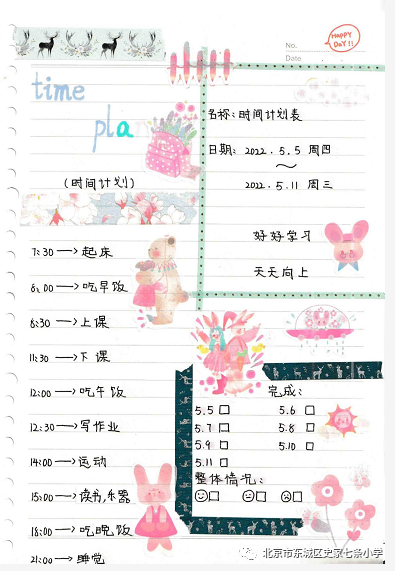 HAPPY
DAY!!
No.
Date
time
pla
(时间计划)
名称:时间计划表
日期: 2022.5.5 周四
~
2022.5.11 周三
好好学习
天天向上
7:30→起床
8:00→吃早饭
8:30→上课
11:30→下课
12:00→吃午饭
12:30→写作业
14:00→运动
15:00→读书,乐器
18:00→吃晚饭
21:00→睡觉
完成:
5.5□ 5.6□
5.7□ 5.8□
5.9□ 5.10□
5.11□
整体情况:
北京市东城区史家七条小学